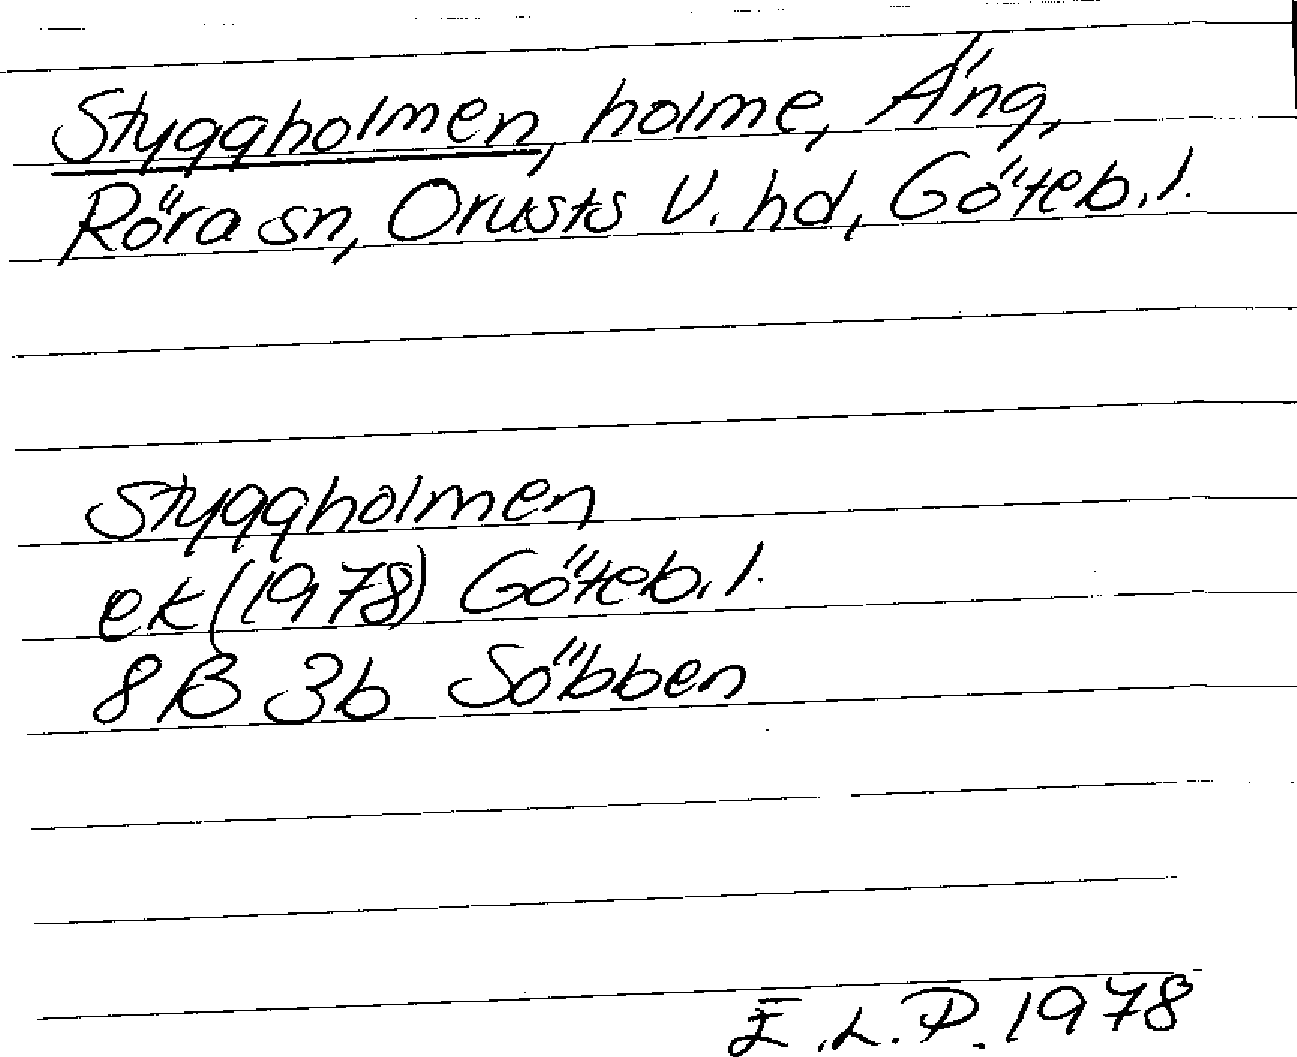 Styggholmen, holme, Äng,
Röra sn, Orusts V. hd, Göteb. l.
Styggholmen
ek (1978) Göteb. l.
8B 3b Söbben
E.L.P. 1978